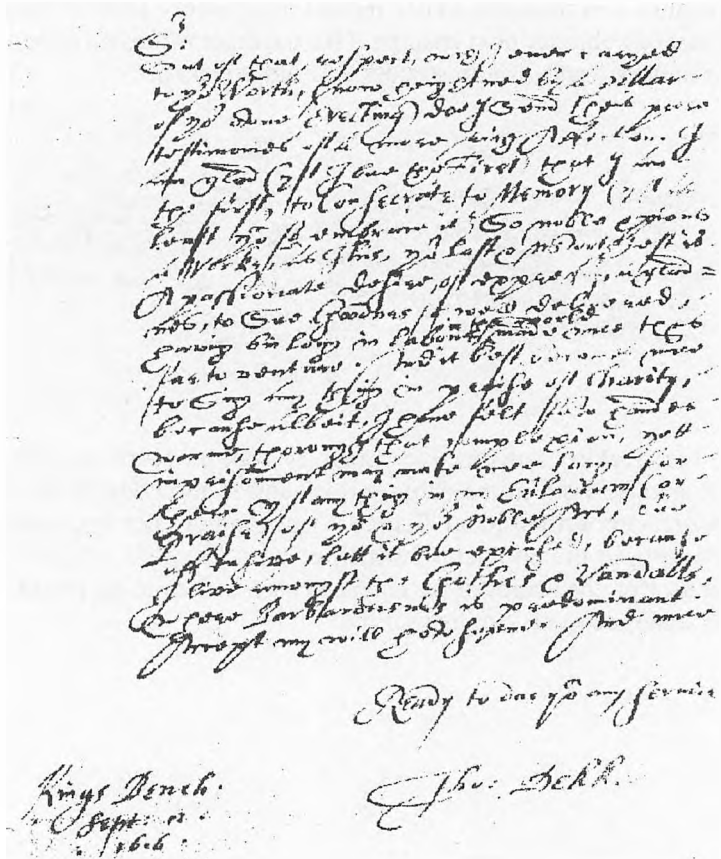 Sr
Out of that respect, wch I ever caryed
to yor Worth, (now heightned by a Pillar
of yor owne Erecting) doe I Send theis poore
testimonies of a more rich Affection. I
am glad (yf I bee the First) that I am
the first, to Consecrate to Memory (yf at
least yo so embrace it) So noble & pious
a Worke, as This, yor last & worthiest is.
A passionate desire, of expressing glad=
nes, to See Goodnes so well delivered,
having bin long in labour in the world made mee thus
far to venture. And it best mee
to Sing any thing in praise of Charity,
because albeit, I have felt few handes
warme, through that complexion, yett
imprisonment may make mee long for
them. yf any thing in my Eulogium (or
Praise) of yo & yor Noble Act, bee
offensive, lett it bee excused, because
I live amongst the Gothes & Vandalls,
where Barbarousnes is predominant
Accept my will howsoever And mee
Ready to doe yo any service
Tho: Dekk.
Kings Bench.
Sept: 12
1616